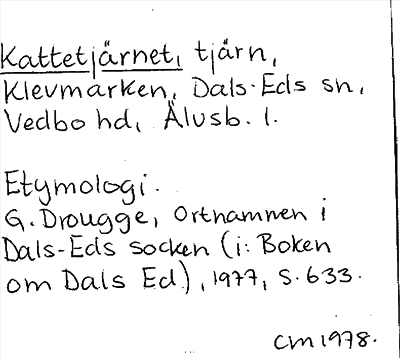 Kattetjärnet, tjärn,
Klevmarken, Dals-Eds sn,
Vedbo hd, Älvsb. l.
Etymologi.
G. Drougge, Ortnamnen i
Dals-Eds socken (i: Boken
om Dals Ed), 1977, S. 633.
CM 1978.